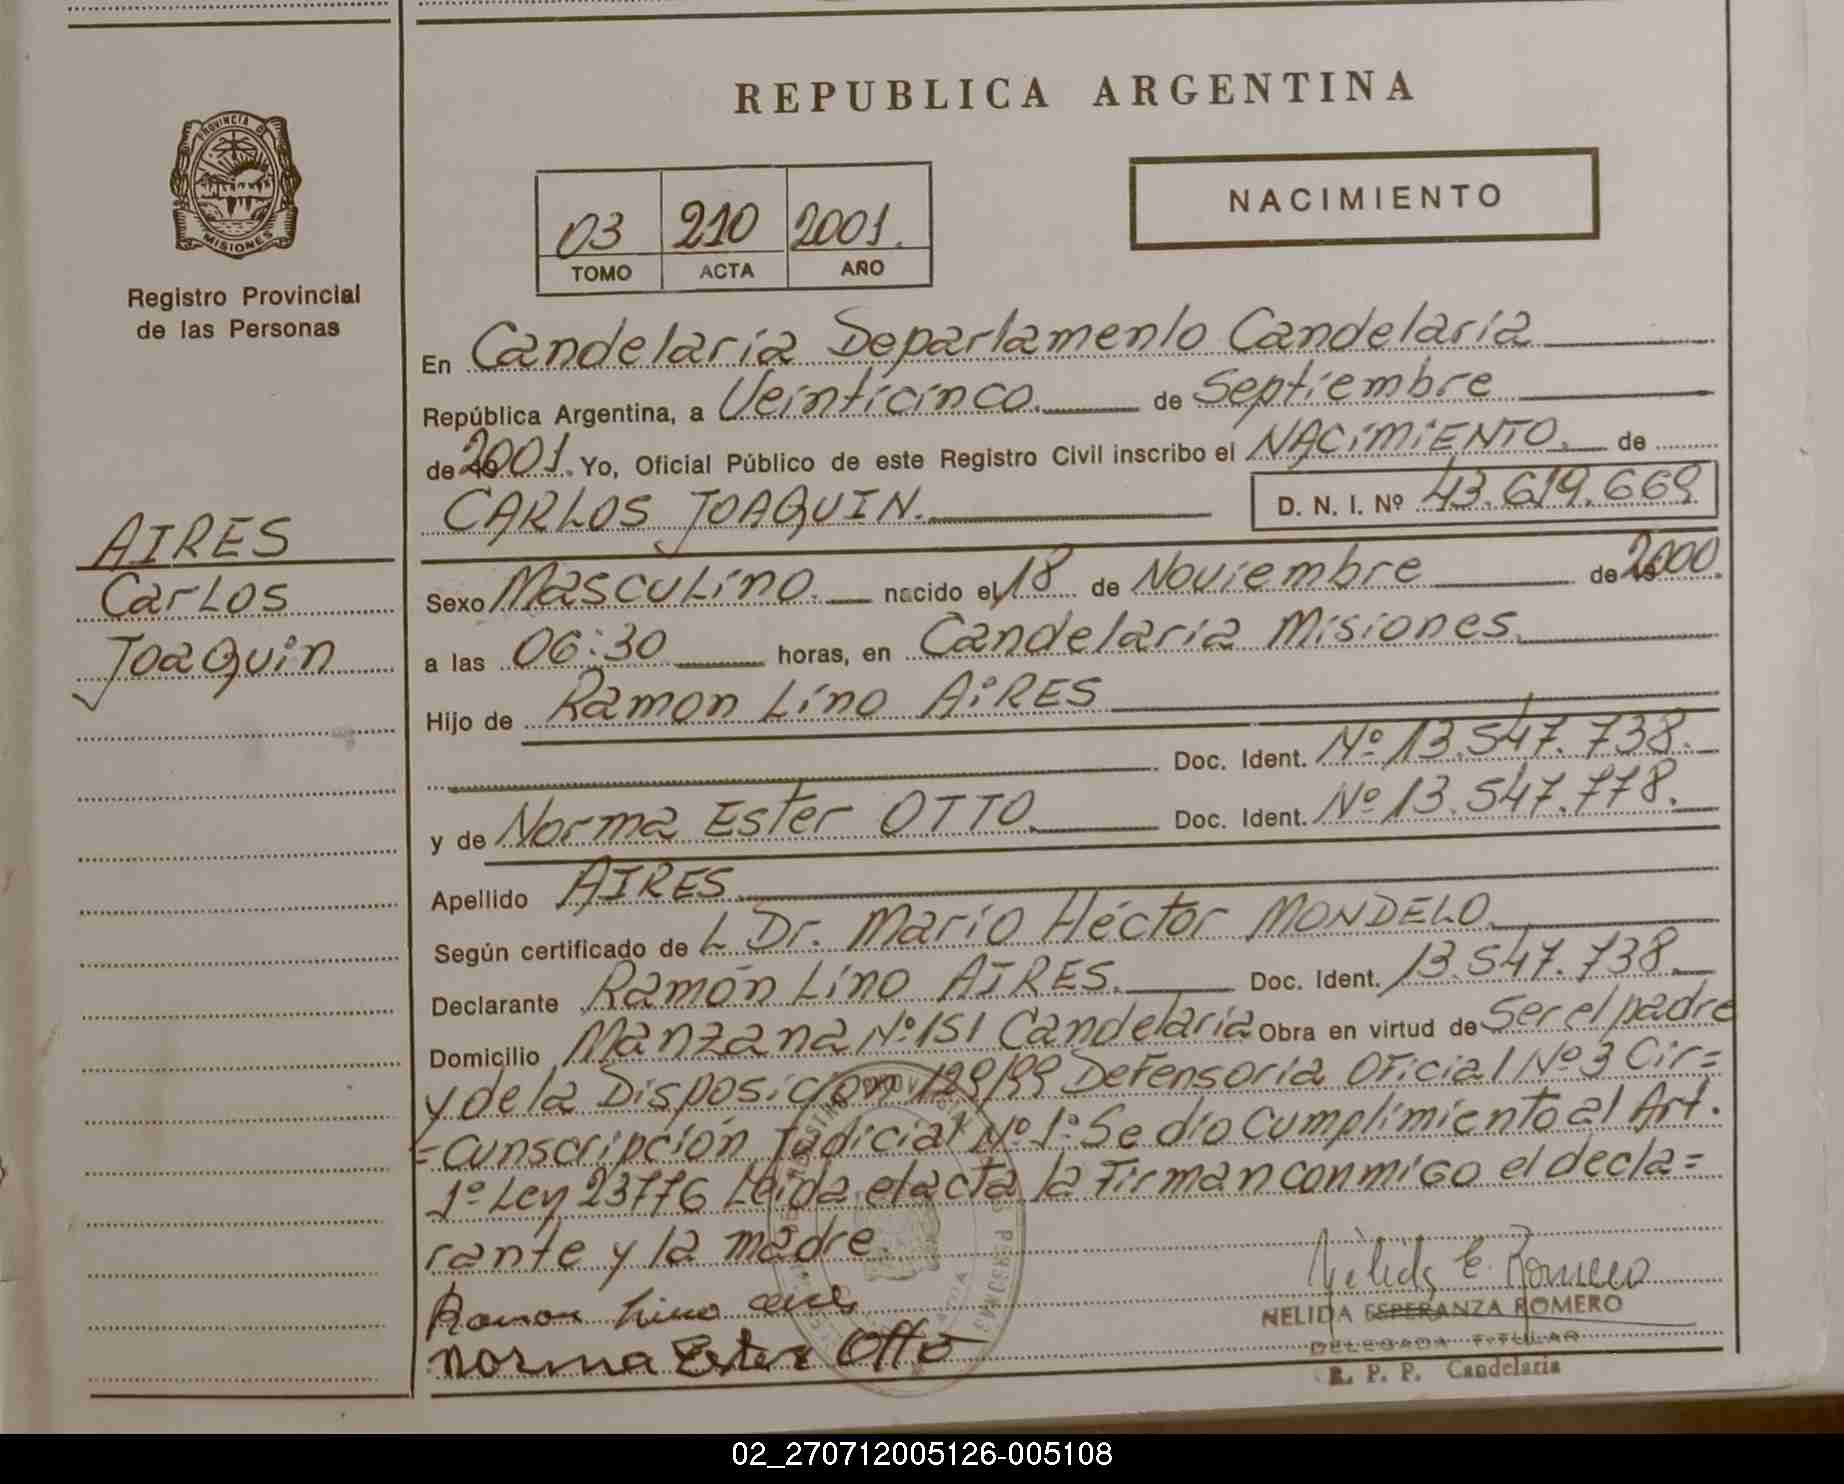 REPUBLICA ARGENTINA
PROVINCIA D
MISIONES
Registro Provincial
de las Personas
03 210 2001.
TOMO ACTA AÑO
NACIMIENTO
AIRES
Carlos
Joaquin
En Candelaria Departamento Candelaria
República Argentina, a Veinticinco. de Septiembre
de 2001. Yo, Oficial Público de este Registro Civil inscribo el NACIMIENTO. de
CARLOS JOAQUIN. D. N. I. Nº 43.619.669
Sexo Masculino. nacido el 18 de Noviembre de 2000.
a las 06:30 horas, en Candelaria Misiones.
Hijo de Ramon Lino AIRES
Doc. Ident. Nº 13.547.738.
y de Norma Ester OTTO. Doc. Ident. Nº 13.547.778.
Apellido AIRES.
Según certificado de L Dr. Mario Héctor MONDELO.
Declarante Ramón Lino AIRES. Doc. Ident. 13.547.738.
Domicilio Manzana Nº 151 Candelaria Obra en virtud de Ser el padre
y de la Disposición 129/99 Defensoria Oficial Nº 3 Cir=
=cunscripción Judicial Nº 1º Se dio Cumplimiento al Art.
1º Ley 23776 Leida el acta la Firman conmigo el decla=
rante y la madre.
Ramon Lino
Norma Ester Otto
Nélida E. Romero
NELIDA ESPERANZA ROMERO
DELEGADA TITULAR
R. P. P. Candelaria
02_270712005126-005108